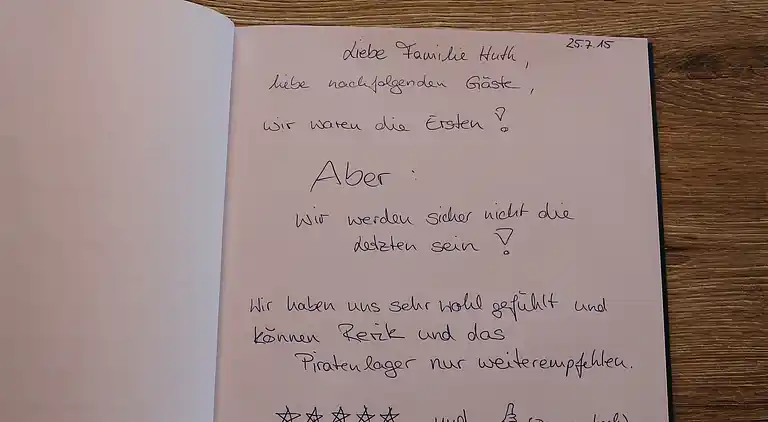 25.7.15
Liebe Familie Huth,
liebe nachfolgenden Gäste,
wir waren die Ersten!
Aber:
Wir werden sicher nicht die
Letzten sein!
Wir haben uns sehr wohl gefühlt und
können Rerik und das
Piratenlager nur weiterempfehlen.
☆☆☆☆☆ und